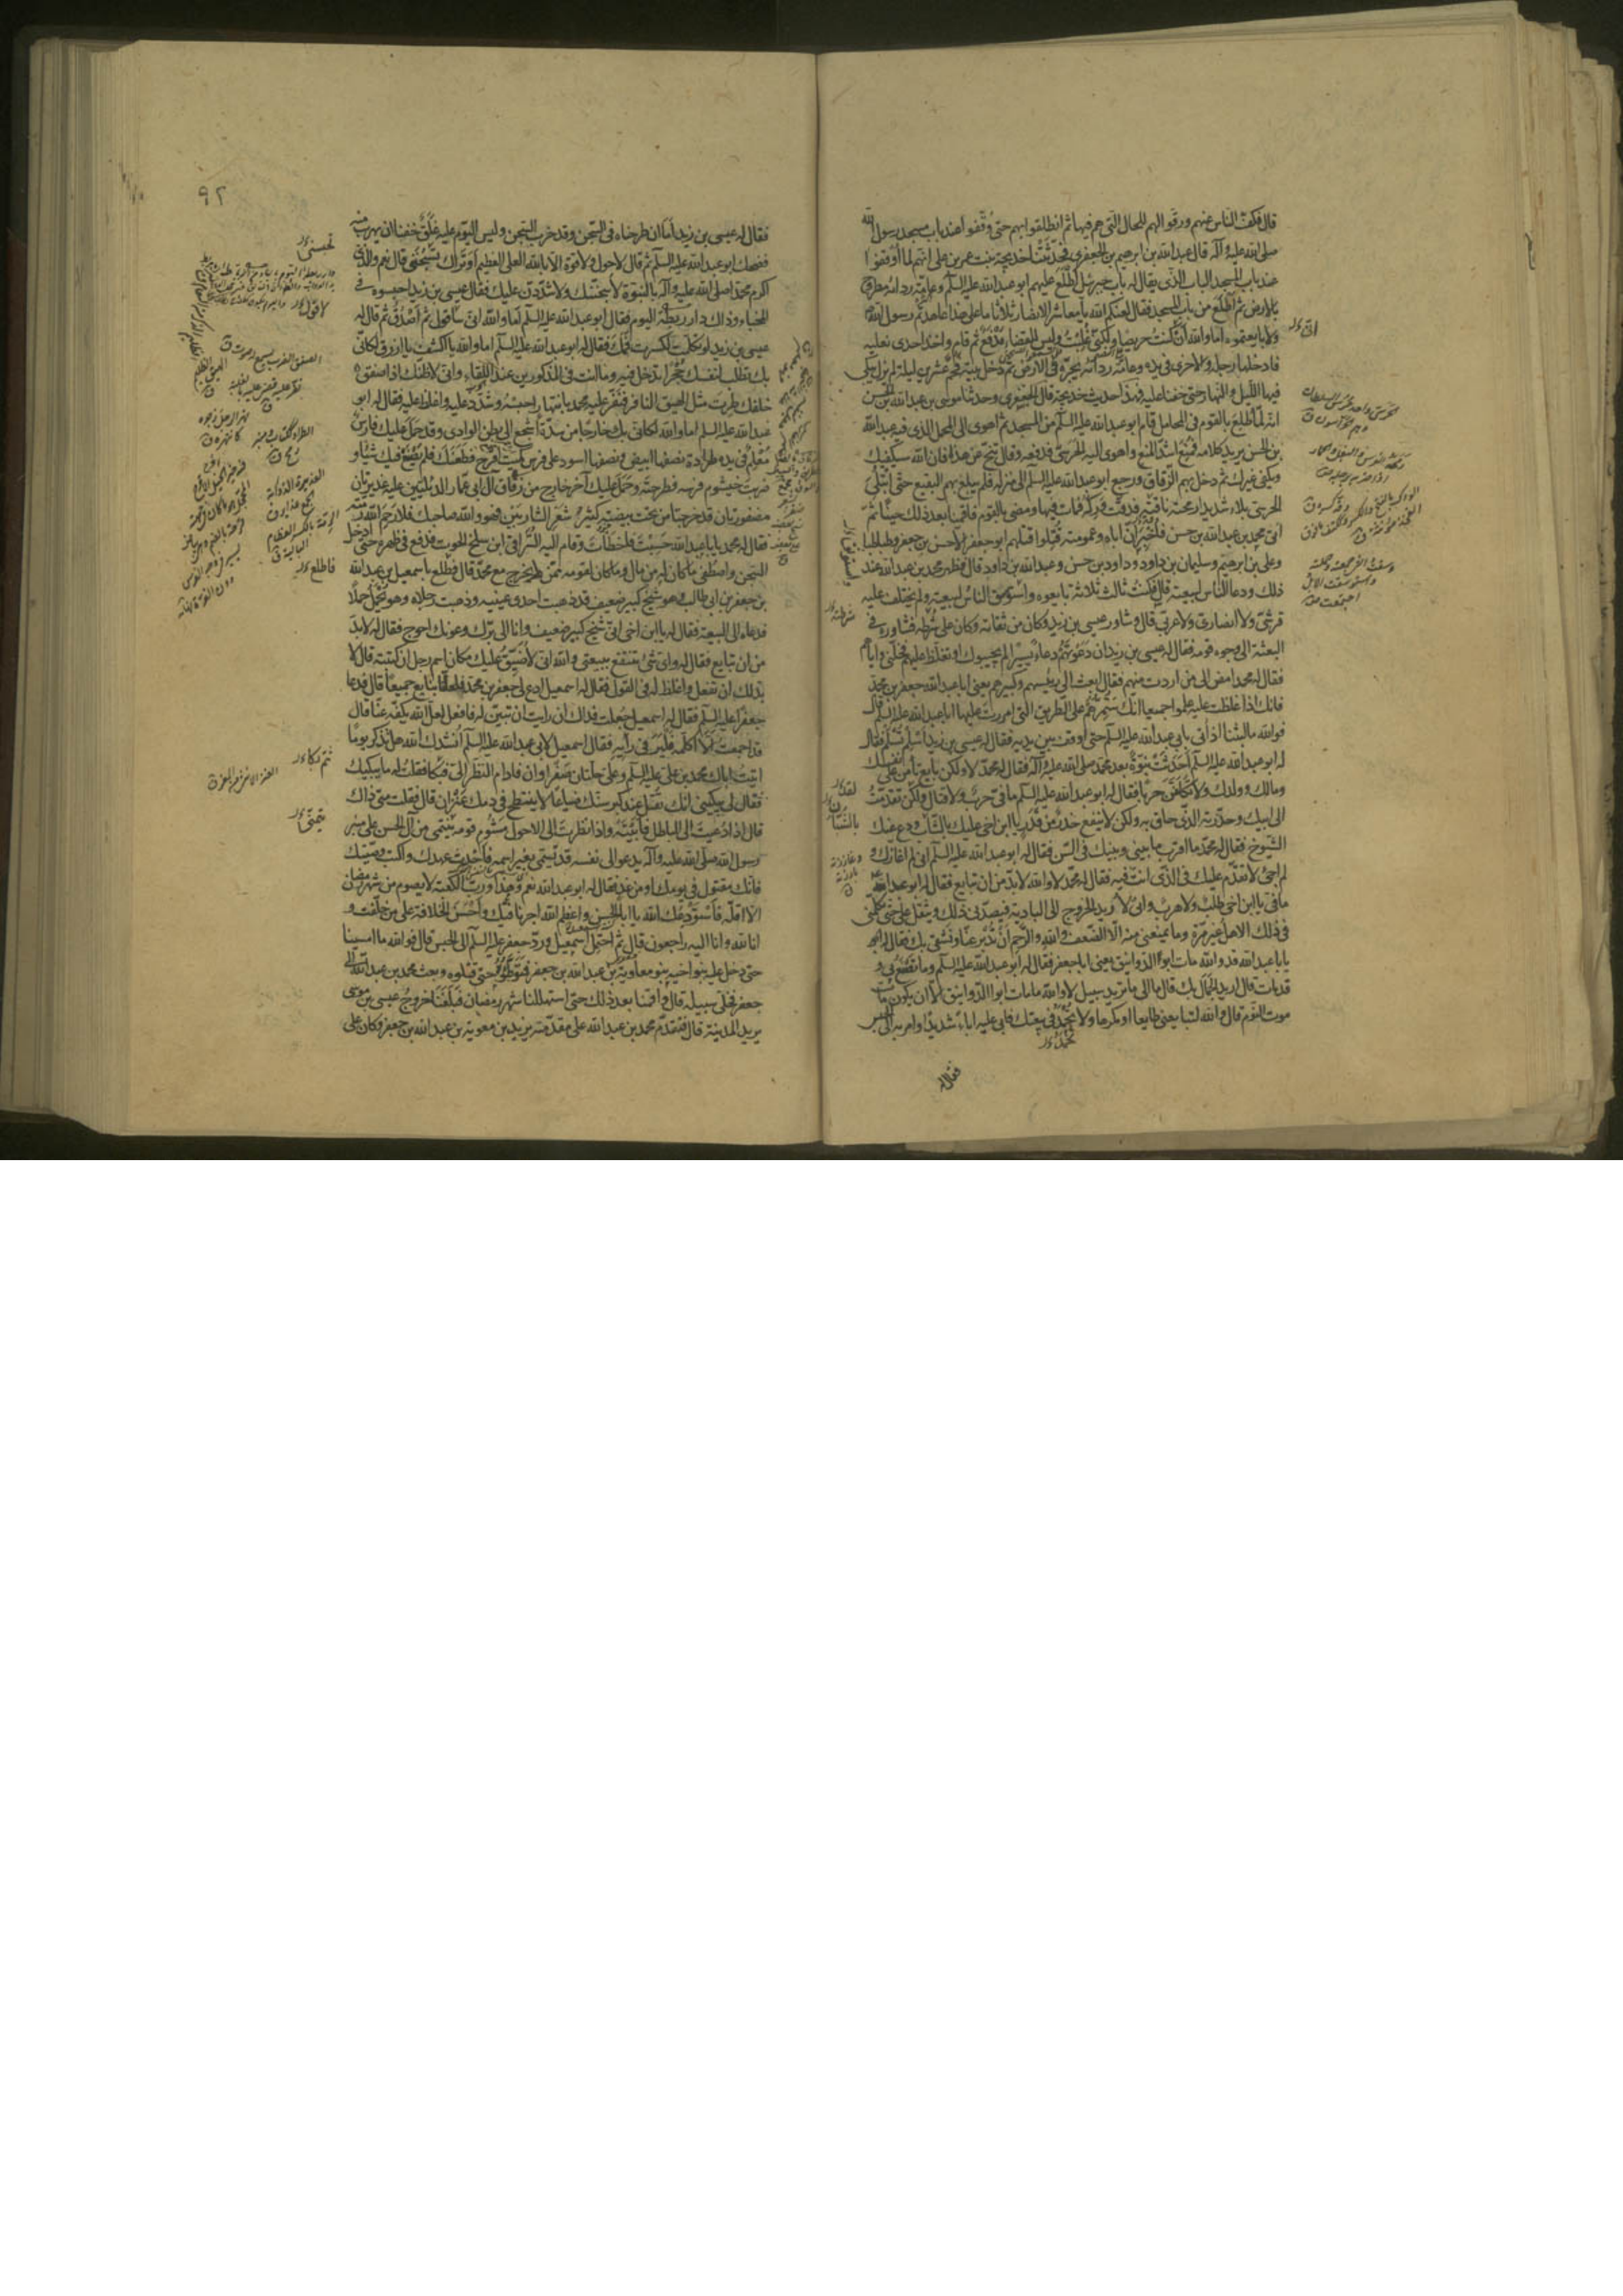 قال فكفّ الناس عنهم ورقّوا لهم للحال التي هم فيها ثم انطلقوا بهم حتى وقفوا عند باب مسجد رسول الله
صلى الله عليه وآله قال عبد الله بن ابرهيم الجعفري فحدثتنا خديجة بنت عمر بن علي انهم لما أوقفوا
عند باب المسجد الباب الذي يقال له باب جبرئيل اطّلع عليهم ابو عبد الله عليه السلم وعامة ردائه مطروح
بالارض ثم اطّلع من باب المسجد فقال لعنكم الله يا معاشر الانصار ثلاثا ما على هذا عاهدتم رسول الله
ولا بايعتموه اما والله ان كنت حريصا ولكني غلبت وليس للقضاء مدفع ثم قام واخذ احدى نعليه
فادخلها رجله والاخرى في يده وعامة ردائه يجرّه في الارض ثم دخل بيته فحمّ عشرين ليلة لم يزل يبكي
فيها الليل والنهار حتى خفنا عليه فهذا حديث خديجة قال الجعفري وحدثنا موسى بن عبد الله بن الحسن
انه لما طلع بالقوم في المحامل قام ابو عبد الله عليه السلم من المسجد ثم اهوى الى المحمل الذي فيه عبد الله
بن الحسن يريد كلامه فمنع اشدّ المنع واهوى اليه الحرسي فدفعه وقال تنحّ عن هذا فان الله سيكفيك
ويكفي غيرك ثم دخل بهم الزقاق ورجع ابو عبد الله عليه السلم الى منزله فلم يبلغ بهم البقيع حتى ابتلي
الحرسي بلاء شديدا رمحته ناقته فدقّت وركه فمات فيها ومضى بالقوم فاقمنا بعد ذلك حينا ثم
اتى محمد بن عبد الله بن حسن فأخبر ان اباه وعمومته قتلوا قتلهم ابو جعفر الا حسن بن جعفر وطباطبا
وعلي بن ابرهيم وسليمان بن داود وداود بن حسن وعبد الله بن داود قال فظهر محمد بن عبد الله عند
ذلك ودعا الناس لبيعته قال فكنت ثالث ثلاثة بايعوه واستوسق الناس لبيعته ولم يختلف عليه
قرشيّ ولا انصاريّ ولا عربيّ قال وشاور عيسى بن زيد وكان من ثقاته وكان على شرطه فشاوره في
البعثة الى وجوه قومه فقال له عيسى بن زيد ان دعوتهم دعاء يسيرا لم يجيبوك او تغلظ عليهم فخلّني واياهم
فقال له محمد امض الى من اردت منهم فقال ابعث الى رئيسهم وكبيرهم يعني ابا عبد الله جعفر بن محمد
فانك اذا غلظت عليه علموا جميعا انك ستمرّهم على الطريق التي امررت عليها ابا عبد الله عليه السلم قال
فوالله ما لبثنا اذ أتي بابي عبد الله عليه السلم حتى اوقف بين يديه فقال له عيسى بن زيد اسلم تسلم فقال
له ابو عبد الله عليه السلم أحدثت نبوّة بعد محمد صلى الله عليه وآله فقال له محمد لا ولكن بايع تأمن على نفسك
ومالك وولدك ولا تكلّفنّ حربا فقال له ابو عبد الله عليه السلم ما فيّ حرب ولا قتال ولكن تقدّمت
الى ابيك وحذّرته الذي حاق به ولكن لا ينفع حذر من قدر يا ابن اخي عليك بالشباب ودع عنك
الشيوخ فقال له محمد ما اقرب ما بيني وبينك في السن فقال له ابو عبد الله عليه السلم اني لم اعازّك و
لم اجئ لاتقدّم عليك في الذي انت فيه فقال له محمد لا والله لا بد من ان تبايع فقال له ابو عبد الله
ما فيّ يا ابن اخي طلب ولا هرب واني لاريد الخروج الى البادية فيصدّني ذلك ويثقل عليّ حتى تكلّمني
في ذلك الاهل غير مرة وما يمنعني منه الا الضعف والله والرحم ان تدبر عنا ونشقى بك فقال له
يا ابا عبد الله قد والله مات ابو الدوانيق يعني ابا جعفر فقال له ابو عبد الله عليه السلم وما تصنع بي و
قد مات قال اريد الجمال بك قال ما الى ما تريد سبيل لا والله ما مات ابو الدوانيق الا ان يكون مات
موت النوم قال والله لتبايعني طايعا او مكرها ولا تحمد في بيعتك فابى عليه اباء شديدا وامر به الى الحبس
فقال له
٩٢
فقال له عيسى بن زيد اما ان طرحناه في السجن وقد خرب السجن وليس اليوم عليه غلق خفنا ان يهرب منه
فضحك ابو عبد الله عليه السلم ثم قال لا حول ولا قوة الا بالله العلي العظيم أوتراك تسجنني قال نعم والذي
اكرم محمدا صلى الله عليه وآله بالنبوة لاسجننّك ولاشدّدنّ عليك فقال عيسى بن زيد احبسوه في
المخباء وذاك دار ريطة اليوم فقال ابو عبد الله عليه السلم اما والله اني سأقول ثم أصدّق ثم قال له
عيسى بن زيد لو تكلمت لكسرت فمك فقال له ابو عبد الله عليه السلم اما والله يا اكشف يا ازرق لكأني
بك تطلب لنفسك جحرا تدخل فيه وما انت في المذكورين عند اللقاء واني لاظنك اذا صفق
خلفك طرت مثل الهيق النافر فنفر عليه محمد بانتهار احبسه وشدّد عليه واغلظ عليه فقال له ابو
عبد الله عليه السلم اما والله لكأني بك خارجا من سدّة اشجع الى بطن الوادي وقد حمل عليك فارس
معلم في يده طرادة نصفها ابيض ونصفها اسود على فرس كميت اقرح فطعنك فلم يصنع فيك شيئا و
ضربت خيشوم فرسه فطرحته وحمل عليك آخر خارج من زقاق آل ابي عمار الدئليين عليه غديرتان
مضفورتان قد خرجتا من تحت بيضته كثير شعر الشاربين فهو والله صاحبك فلا رحم الله رمته
فقال له محمد يا ابا عبد الله حسبت فاخطأت وقام اليه السراقي ابن سلخ الحوت فدفع في ظهره حتى ادخل
السجن واصطفي ما كان له من مال وما كان لقومه ممن لم يخرج مع محمد قال فطلع باسمعيل بن عبد الله
بن جعفر بن ابي طالب وهو شيخ كبير ضعيف قد ذهبت احدى عينيه وذهبت رجلاه وهو يحمل حملا
فدعاه الى البيعة فقال له يا ابن اخي اني شيخ كبير ضعيف وانا الى برّك وعونك احوج فقال له لا بد
من ان تبايع فقال له واي شيء تنتفع ببيعتي والله اني لاضيّق عليك مكان اسم رجل ان كتبته قال لا
بد لك ان تفعل واغلظ له في القول فقال له اسمعيل ادع لي جعفر بن محمد فلعلنا نبايع جميعا قال فدعا
جعفرا عليه السلم فقال له اسمعيل جعلت فداك ان رايت ان تبين له فافعل لعل الله يكفّه عنا قال
قد اجمعت الا اكلمه فلير فيّ رأيه فقال اسمعيل لابي عبد الله عليه السلم انشدك الله هل تذكر يوما
اتيت اباك محمد بن علي عليه السلم وعليّ حلتان صفراوان فادام النظر اليّ فبكا فقلت له ما يبكيك
فقال لي يبكيني انك تقتل عند كبر سنك ضياعا لا ينتطح في دمك عنزان قال فقلت متى ذاك
قال اذا دعيت الى الباطل فأبيته واذا نظرت الى الاحول مشوم قومه ينتمي من آل الحسن على منبر
رسول الله صلى الله عليه وآله يدعو الى نفسه قد تسمى بغير اسمه فأحدث عهدك واكتب وصيتك
فانك مقتول في يومك او من غد فقال له ابو عبد الله نعم وهذا ورب الكعبة لا يصوم من شهر رمضان
الا اقله فاستودعك الله يا ابا الحسن واعظم الله اجرنا فيك واحسن الخلافة على من خلّفت و
انا لله وانا اليه راجعون قال ثم احتمل اسمعيل وردّ جعفر عليه السلم الى الحبس قال فوالله ما امسينا
حتى دخل عليه بنو اخيه بنو معاوية بن عبد الله بن جعفر فتوطؤه حتى قتلوه وبعث محمد بن عبد الله الى
جعفر فخلّى سبيله قال واقمنا بعد ذلك حتى استهللنا شهر رمضان فبلغنا خروج عيسى بن موسى
يريد المدينة قال فتقدم محمد بن عبد الله على مقدمته يزيد بن معوية بن عبد الله بن جعفر وكان على